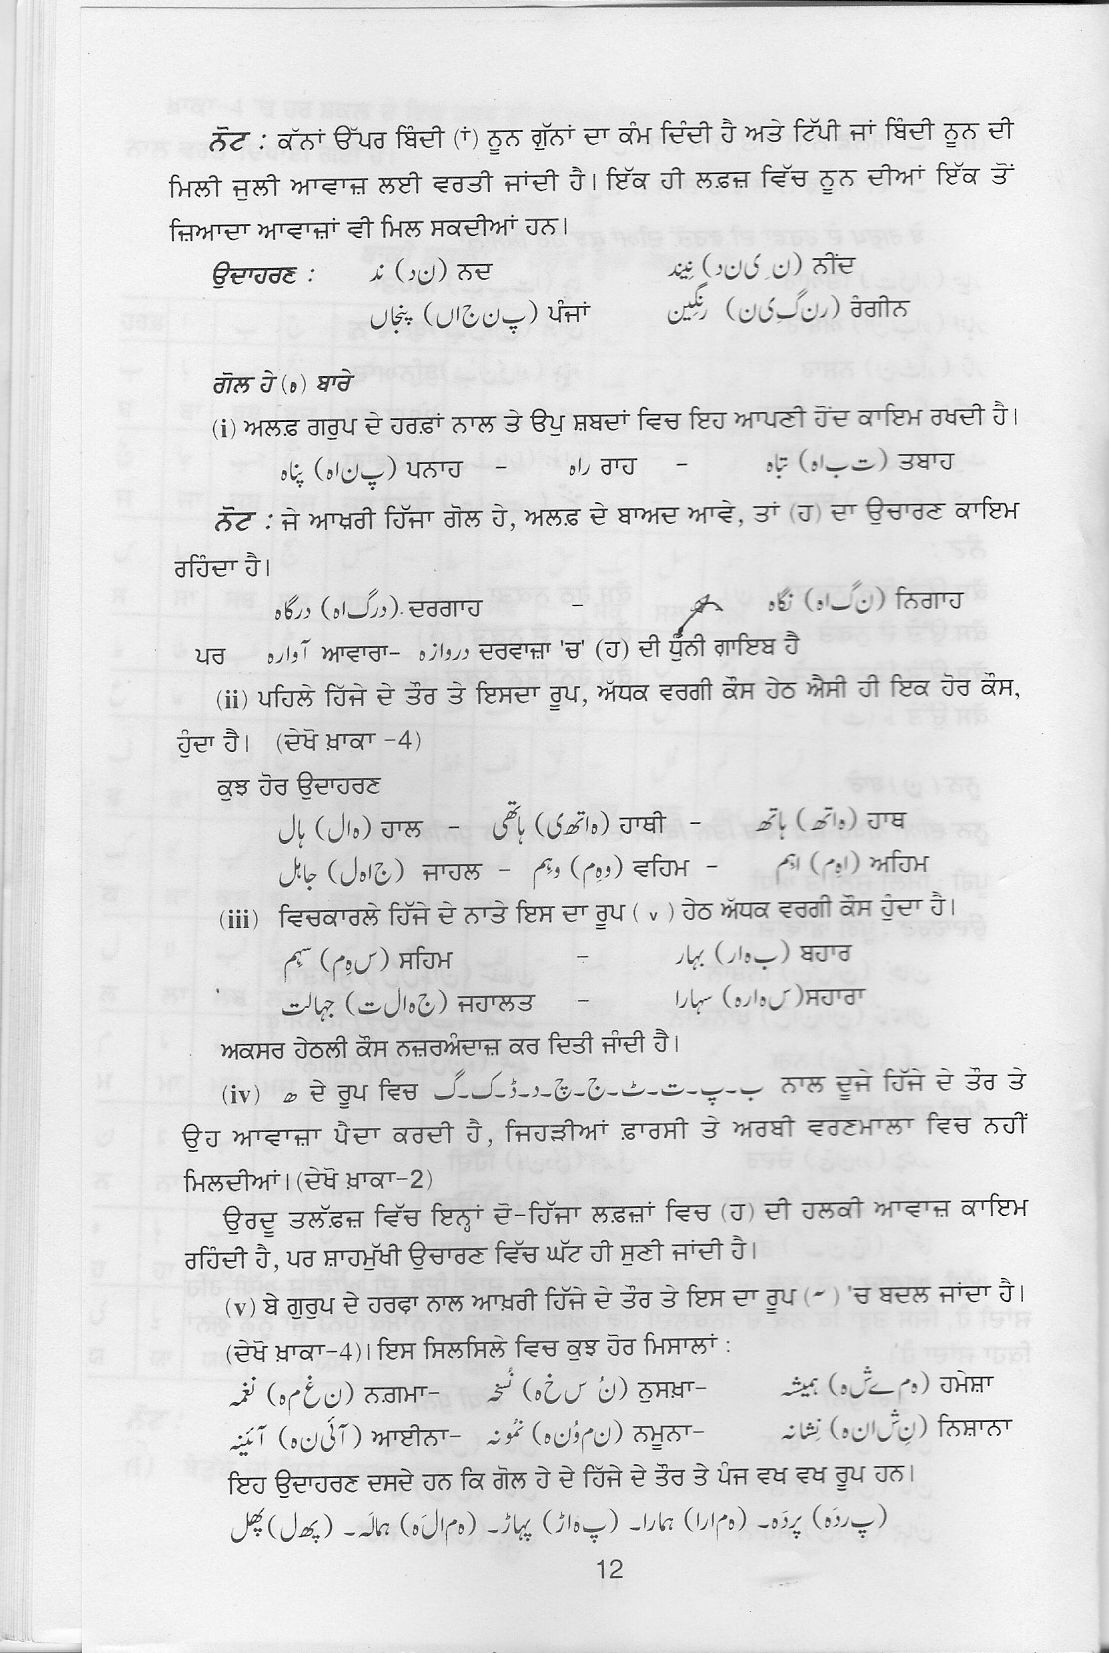 ਨੋਟ : ਕੱਨਾਂ ਉੱਪਰ ਬਿੰਦੀ (ਾਂ) ਨੂਨ ਗੁੱਨਾਂ ਦਾ ਕੰਮ ਦਿੰਦੀ ਹੈ ਅਤੇ ਟਿੱਪੀ ਜਾਂ ਬਿੰਦੀ ਨੂਨ ਦੀ
ਮਿਲੀ ਜੁਲੀ ਆਵਾਜ਼ ਲਈ ਵਰਤੀ ਜਾਂਦੀ ਹੈ। ਇੱਕ ਹੀ ਲਫ਼ਜ਼ ਵਿੱਚ ਨੂਨ ਦੀਆਂ ਇੱਕ ਤੋਂ
ਜ਼ਿਆਦਾ ਆਵਾਜ਼ਾਂ ਵੀ ਮਿਲ ਸਕਦੀਆਂ ਹਨ।
ਉਦਾਹਰਣ : ند (ن د) ਨਦ نِیند (ن ِ ی ن د) ਨੀਂਦ
پنجاں (پ ن ج اں) ਪੰਜਾਂ رنگین (ر ن گ ِی ن) ਰੰਗੀਨ
ਗੋਲ ਹੇ (ہ) ਬਾਰੇ
(i) ਅਲਫ਼ ਗਰੁਪ ਦੇ ਹਰਫ਼ਾਂ ਨਾਲ ਤੇ ੳਪੁ ਸ਼ਬਦਾਂ ਵਿਚ ਇਹ ਆਪਣੀ ਹੋਂਦ ਕਾਇਮ ਰਖਦੀ ਹੈ।
پناہ (پ ن ا ہ) ਪਨਾਹ - راہ ਰਾਹ - تباہ (ت ب ا ہ) ਤਬਾਹ
ਨੋਟ : ਜੇ ਆਖ਼ਰੀ ਹਿੱਜਾ ਗੋਲ ਹੇ, ਅਲਫ਼ ਦੇ ਬਾਅਦ ਆਵੇ, ਤਾਂ (ਹ) ਦਾ ਉਚਾਰਣ ਕਾਇਮ
ਰਹਿੰਦਾ ਹੈ।
درگاہ (د ر گ ا ہ) ਦਰਗਾਹ - نگاہ (ن گ ا ہ) ਨਿਗਾਹ
ਪਰ آوارہ ਆਵਾਰਾ- دروازہ ਦਰਵਾਜ਼ਾ 'ਚ' (ਹ) ਦੀ ਧੁੰਨੀ ਗਾਇਬ ਹੈ
(ii) ਪਹਿਲੇ ਹਿੱਜੇ ਦੇ ਤੌਰ ਤੇ ਇਸਦਾ ਰੂਪ, ਅੱਧਕ ਵਰਗੀ ਕੌਸ ਹੇਠ ਐਸੀ ਹੀ ਇਕ ਹੋਰ ਕੌਸ,
ਹੁੰਦਾ ਹੈ। (ਦੇਖੋ ਖ਼ਾਕਾ -4)
ਕੁਝ ਹੋਰ ਉਦਾਹਰਣ
ہال (ہ ا ل) ਹਾਲ - ہاتھی (ہ ا تھ ی) ਹਾਥੀ - ہاتھ (ہ ا تھ) ਹਾਥ
جاہل (ج ا ہ ل) ਜਾਹਲ - وہم (و ہ م) ਵਹਿਮ - اہم (ا ہ م) ਅਹਿਮ
(iii) ਵਿਚਕਾਰਲੇ ਹਿੱਜੇ ਦੇ ਨਾਤੇ ਇਸ ਦਾ ਰੂਪ ( v ) ਹੇਠ ਅੱਧਕ ਵਰਗੀ ਕੌਸ ਹੁੰਦਾ ਹੈ।
سہم (س ہ م) ਸਹਿਮ - بہار (ب ہ ا ر) ਬਹਾਰ
جہالت (ج ہ ا ل ت) ਜਹਾਲਤ - سہارا (س ہ ا ر ہ)ਸਹਾਰਾ
ਅਕਸਰ ਹੇਠਲੀ ਕੌਸ ਨਜ਼ਰਅੰਦਾਜ਼ ਕਰ ਦਿਤੀ ਜਾਂਦੀ ਹੈ।
(iv) ھ ਦੇ ਰੂਪ ਵਿਚ ب۔پ۔ت۔ٹ۔ج۔چ۔د۔ڈ۔ک۔گ ਨਾਲ ਦੂਜੇ ਹਿੱਜੇ ਦੇ ਤੌਰ ਤੇ
ਉਹ ਆਵਾਜ਼ਾ ਪੈਦਾ ਕਰਦੀ ਹੈ, ਜਿਹੜੀਆਂ ਫ਼ਾਰਸੀ ਤੇ ਅਰਬੀ ਵਰਣਮਾਲਾ ਵਿਚ ਨਹੀਂ
ਮਿਲਦੀਆਂ। (ਦੇਖੋ ਖ਼ਾਕਾ-2)
ਉਰਦੂ ਤਲੱਫ਼ਜ਼ ਵਿੱਚ ਇਨ੍ਹਾਂ ਦੋ-ਹਿੱਜਾ ਲਫ਼ਜ਼ਾਂ ਵਿਚ (ਹ) ਦੀ ਹਲਕੀ ਆਵਾਜ਼ ਕਾਇਮ
ਰਹਿੰਦੀ ਹੈ, ਪਰ ਸ਼ਾਹਮੁੱਖੀ ਉਚਾਰਣ ਵਿੱਚ ਘੱਟ ਹੀ ਸੁਣੀ ਜਾਂਦੀ ਹੈ।
(v) ਬੇ ਗੁਰੁਪ ਦੇ ਹਰਫਾ ਨਾਲ ਆਖ਼ਰੀ ਹਿੱਜੇ ਦੇ ਤੌਰ ਤੇ ਇਸ ਦਾ ਰੂਪ ( ) 'ਚ ਬਦਲ ਜਾਂਦਾ ਹੈ।
(ਦੇਖੋ ਖ਼ਾਕਾ-4)। ਇਸ ਸਿਲਸਿਲੇ ਵਿਚ ਕੁਝ ਹੋਰ ਮਿਸਾਲਾਂ :
نغمہ (ن غ م ہ) ਨਗ਼ਮਾ- نُسخہ (نُ س خ ہ) ਨੁਸਖ਼ਾ- ہمیشہ (ہ م ے ش ہ) ਹਮੇਸ਼ਾ
آئینہ (آ ئ ی ن ہ) ਆਈਨਾ- نمُونہ (ن م ُو ن ہ) ਨਮੂਨਾ- نِشانہ (نِ ش ا ن ہ) ਨਿਸ਼ਾਨਾ
ਇਹ ਉਦਾਹਰਣ ਦਸਦੇ ਹਨ ਕਿ ਗੋਲ ਹੇ ਦੇ ਹਿੱਜੇ ਦੇ ਤੌਰ ਤੇ ਪੰਜ ਵਖ ਵਖ ਰੂਪ ਹਨ।
(پ ر د َ ہ) پردَہ۔ (ہ م ا ر ا) ہمارا۔ (پ ہ ا ڑ) پہاڑ۔ (ہ م ا ل َ ہ) ہمالَہ۔ (پھ ل) پھل
12